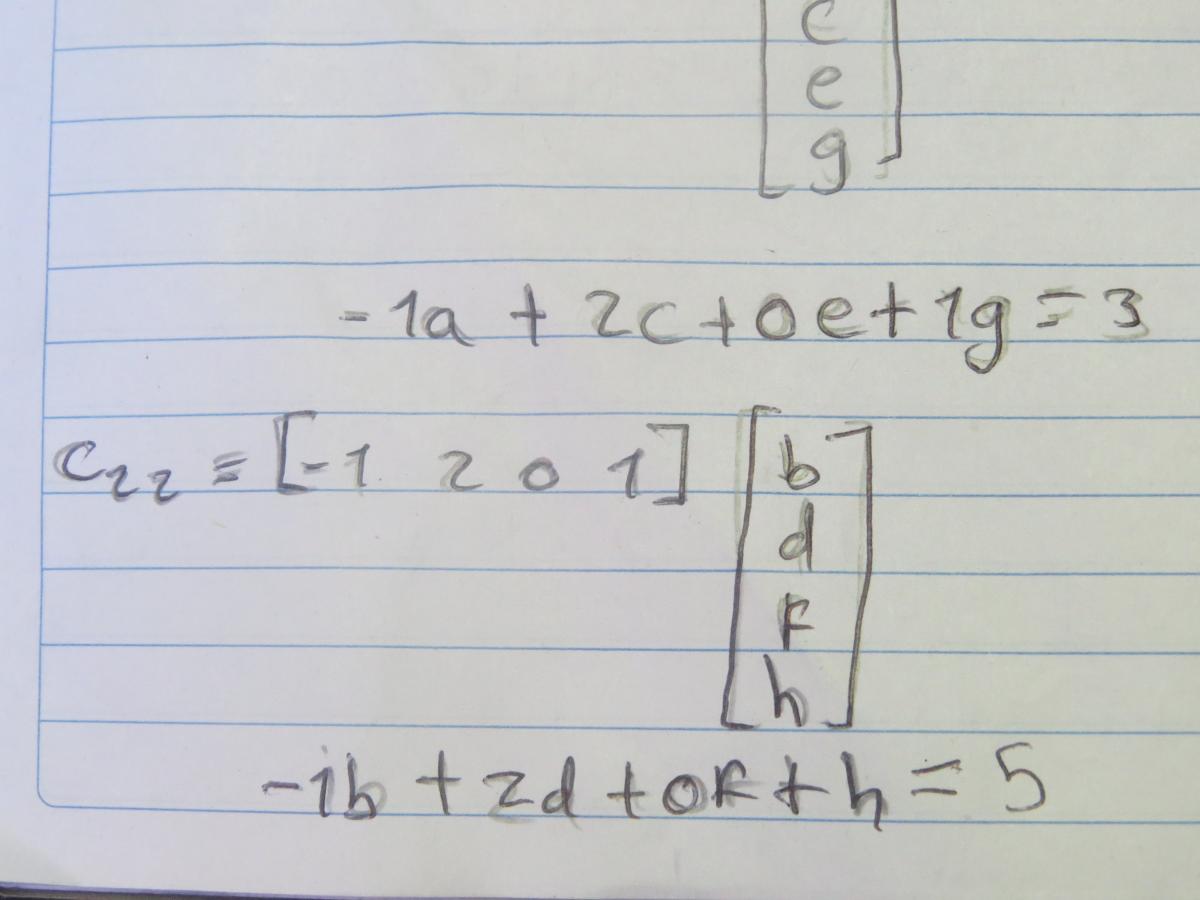 c
e
g
-1a + 2c + 0e + 1g = 3
c₂₂ = [-1 2 0 1] [b
d
F
h]
-1b + 2d + 0F + h = 5